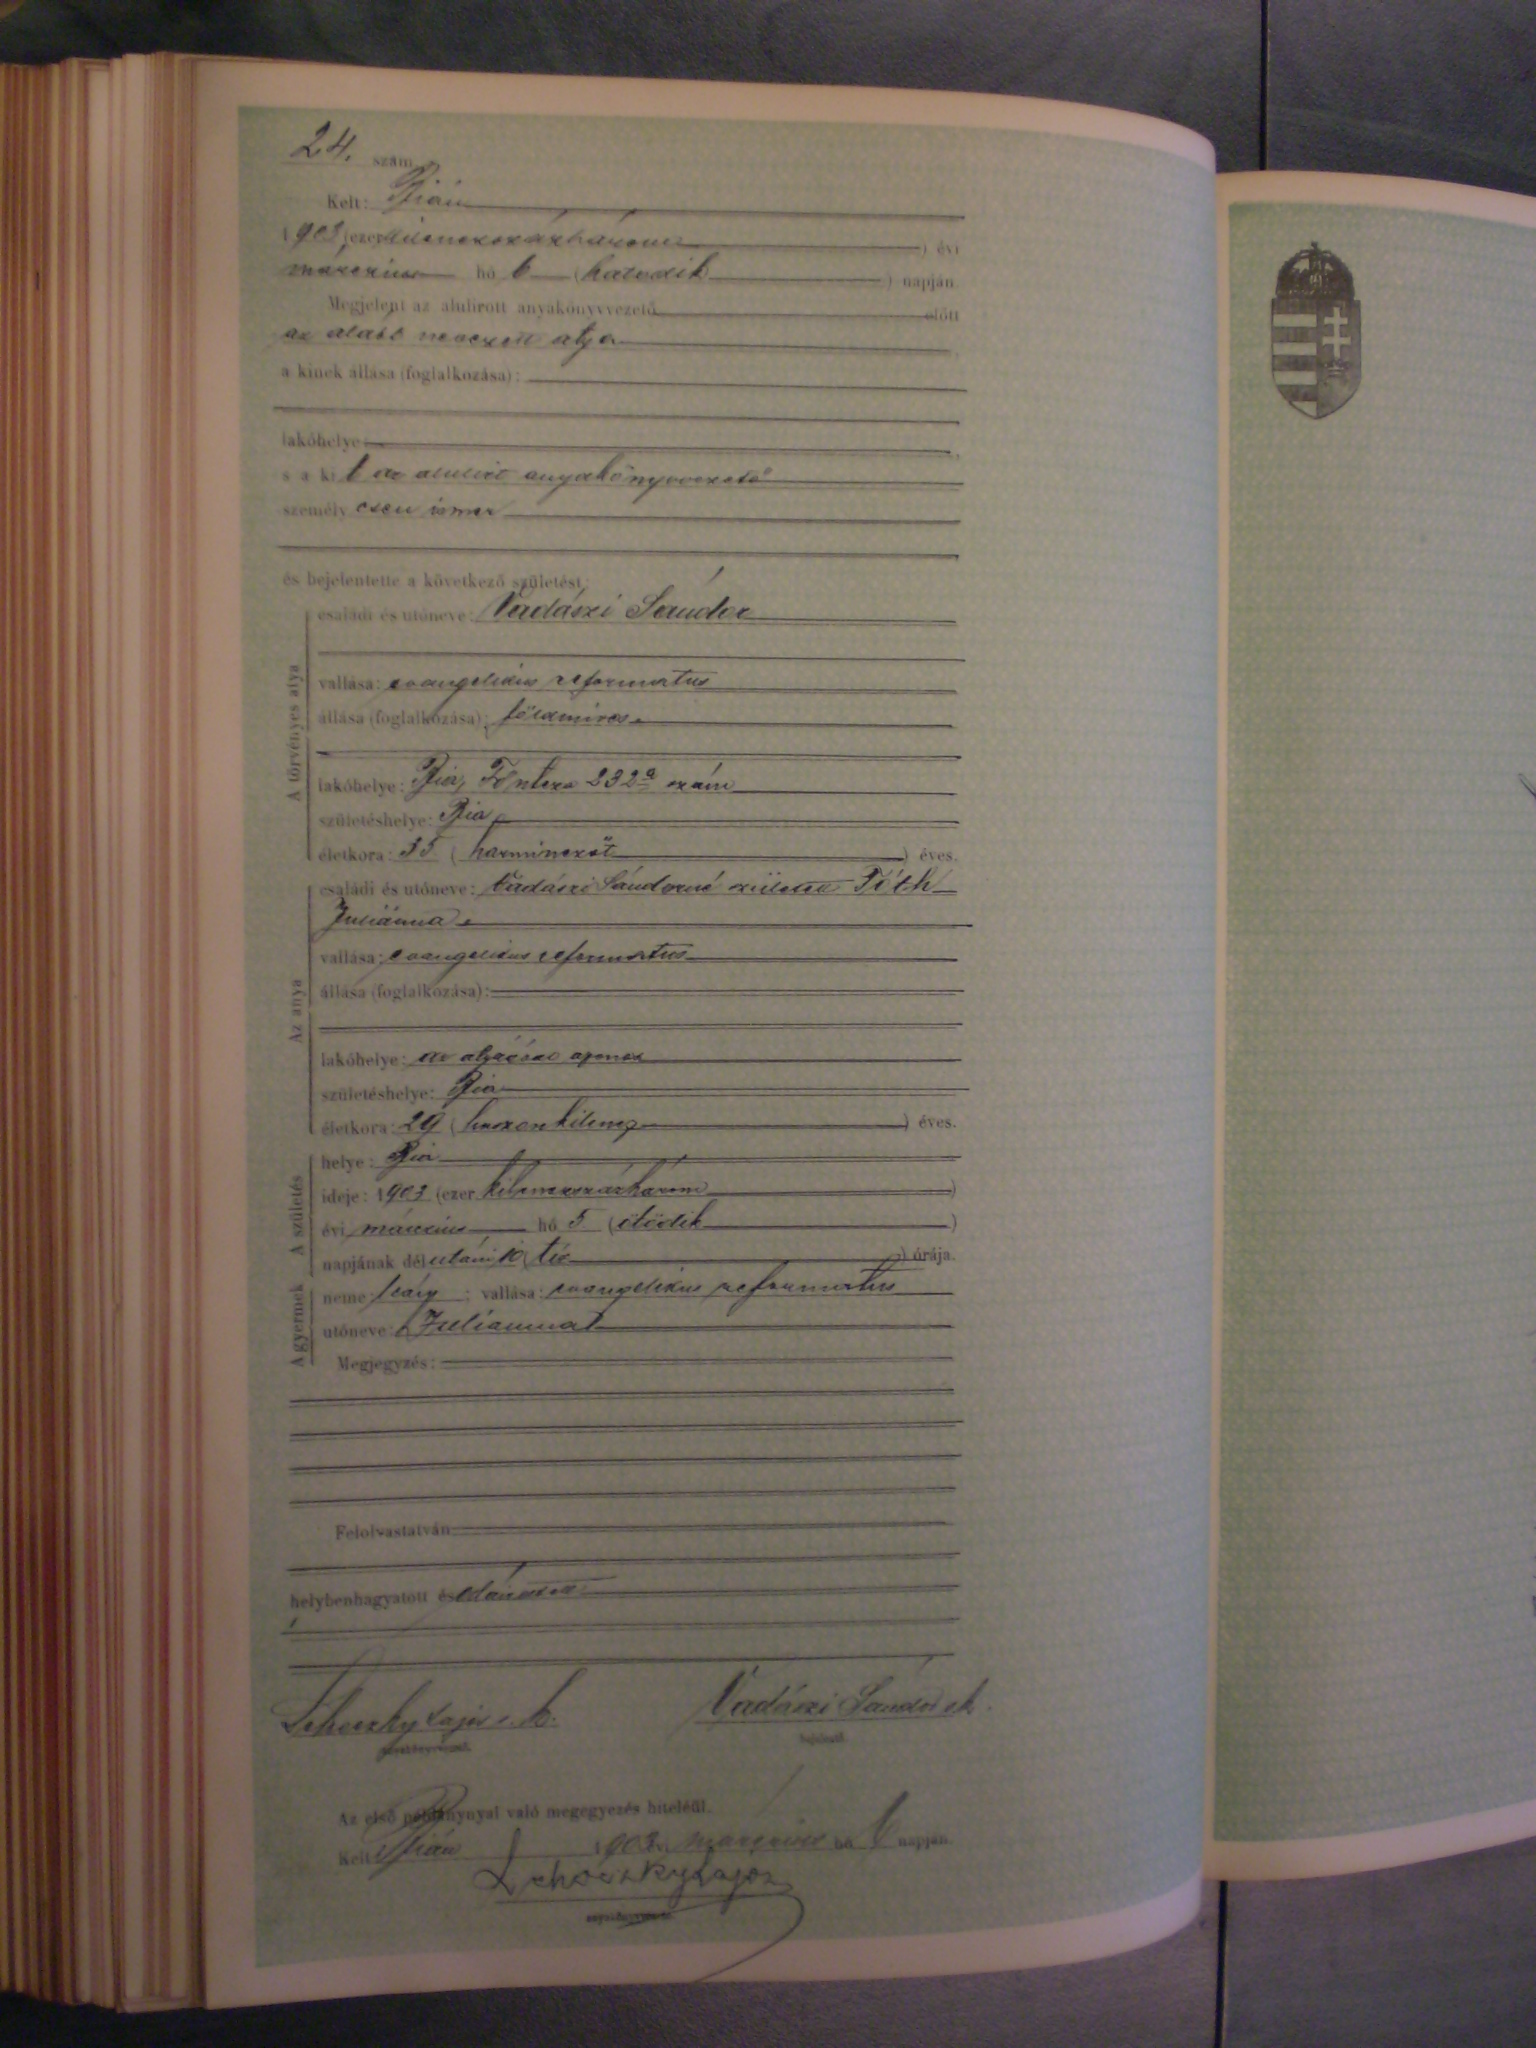 24. szám.
Kelt: Bián
1903 (ezerkilenczszázhárom) évi
márczius hó 6 (hatodik) napján
Megjelent az alulirott anyakönyvvezető előtt
az alább nevezett atya,
a kinek állása (foglalkozása):
lakóhelye
s a kit az alulirt anyakönyvvezető
személyesen ismer
és bejelentette a következő születést:
A törvényes atya
családi és utóneve: Vadászi Sándor
vallása: evangelikus reformatus
állása (foglalkozása): földmives
lakóhelye: Bia, Főutcza 232a szám
születéshelye: Bia
életkora: 35 (harminczöt) éves.
Az anya
családi és utóneve: Vadászi Sándorné született Tóth
Juliánna
vallása: evangelikus reformatus
állása (foglalkozása):
lakóhelye: az atyáéval azonos
születéshelye: Bia
életkora: 29 (huszonkilencz) éves.
A születés
helye: Bia
ideje: 1903 (ezer kilenczszázhárom)
évi márczius hó 5 (ötödik)
napjának délutáni 10 (tíz) órája.
A gyermek
neme: leány; vallása: evangelikus reformatus
utóneve: Julianna
Megjegyzés:
Felolvastatván
helybenhagyatott és aláiratott
Lehoczky Lajos s. k.
Vadászi Sándor s.k.
anyakönyvvezető.
bejelentő.
Az első példánynyal való megegyezés hiteléül.
Kelt Bián 1903 évi márczius hó 6 napján.
Lehoczky Lajos
anyakönyvvezető.